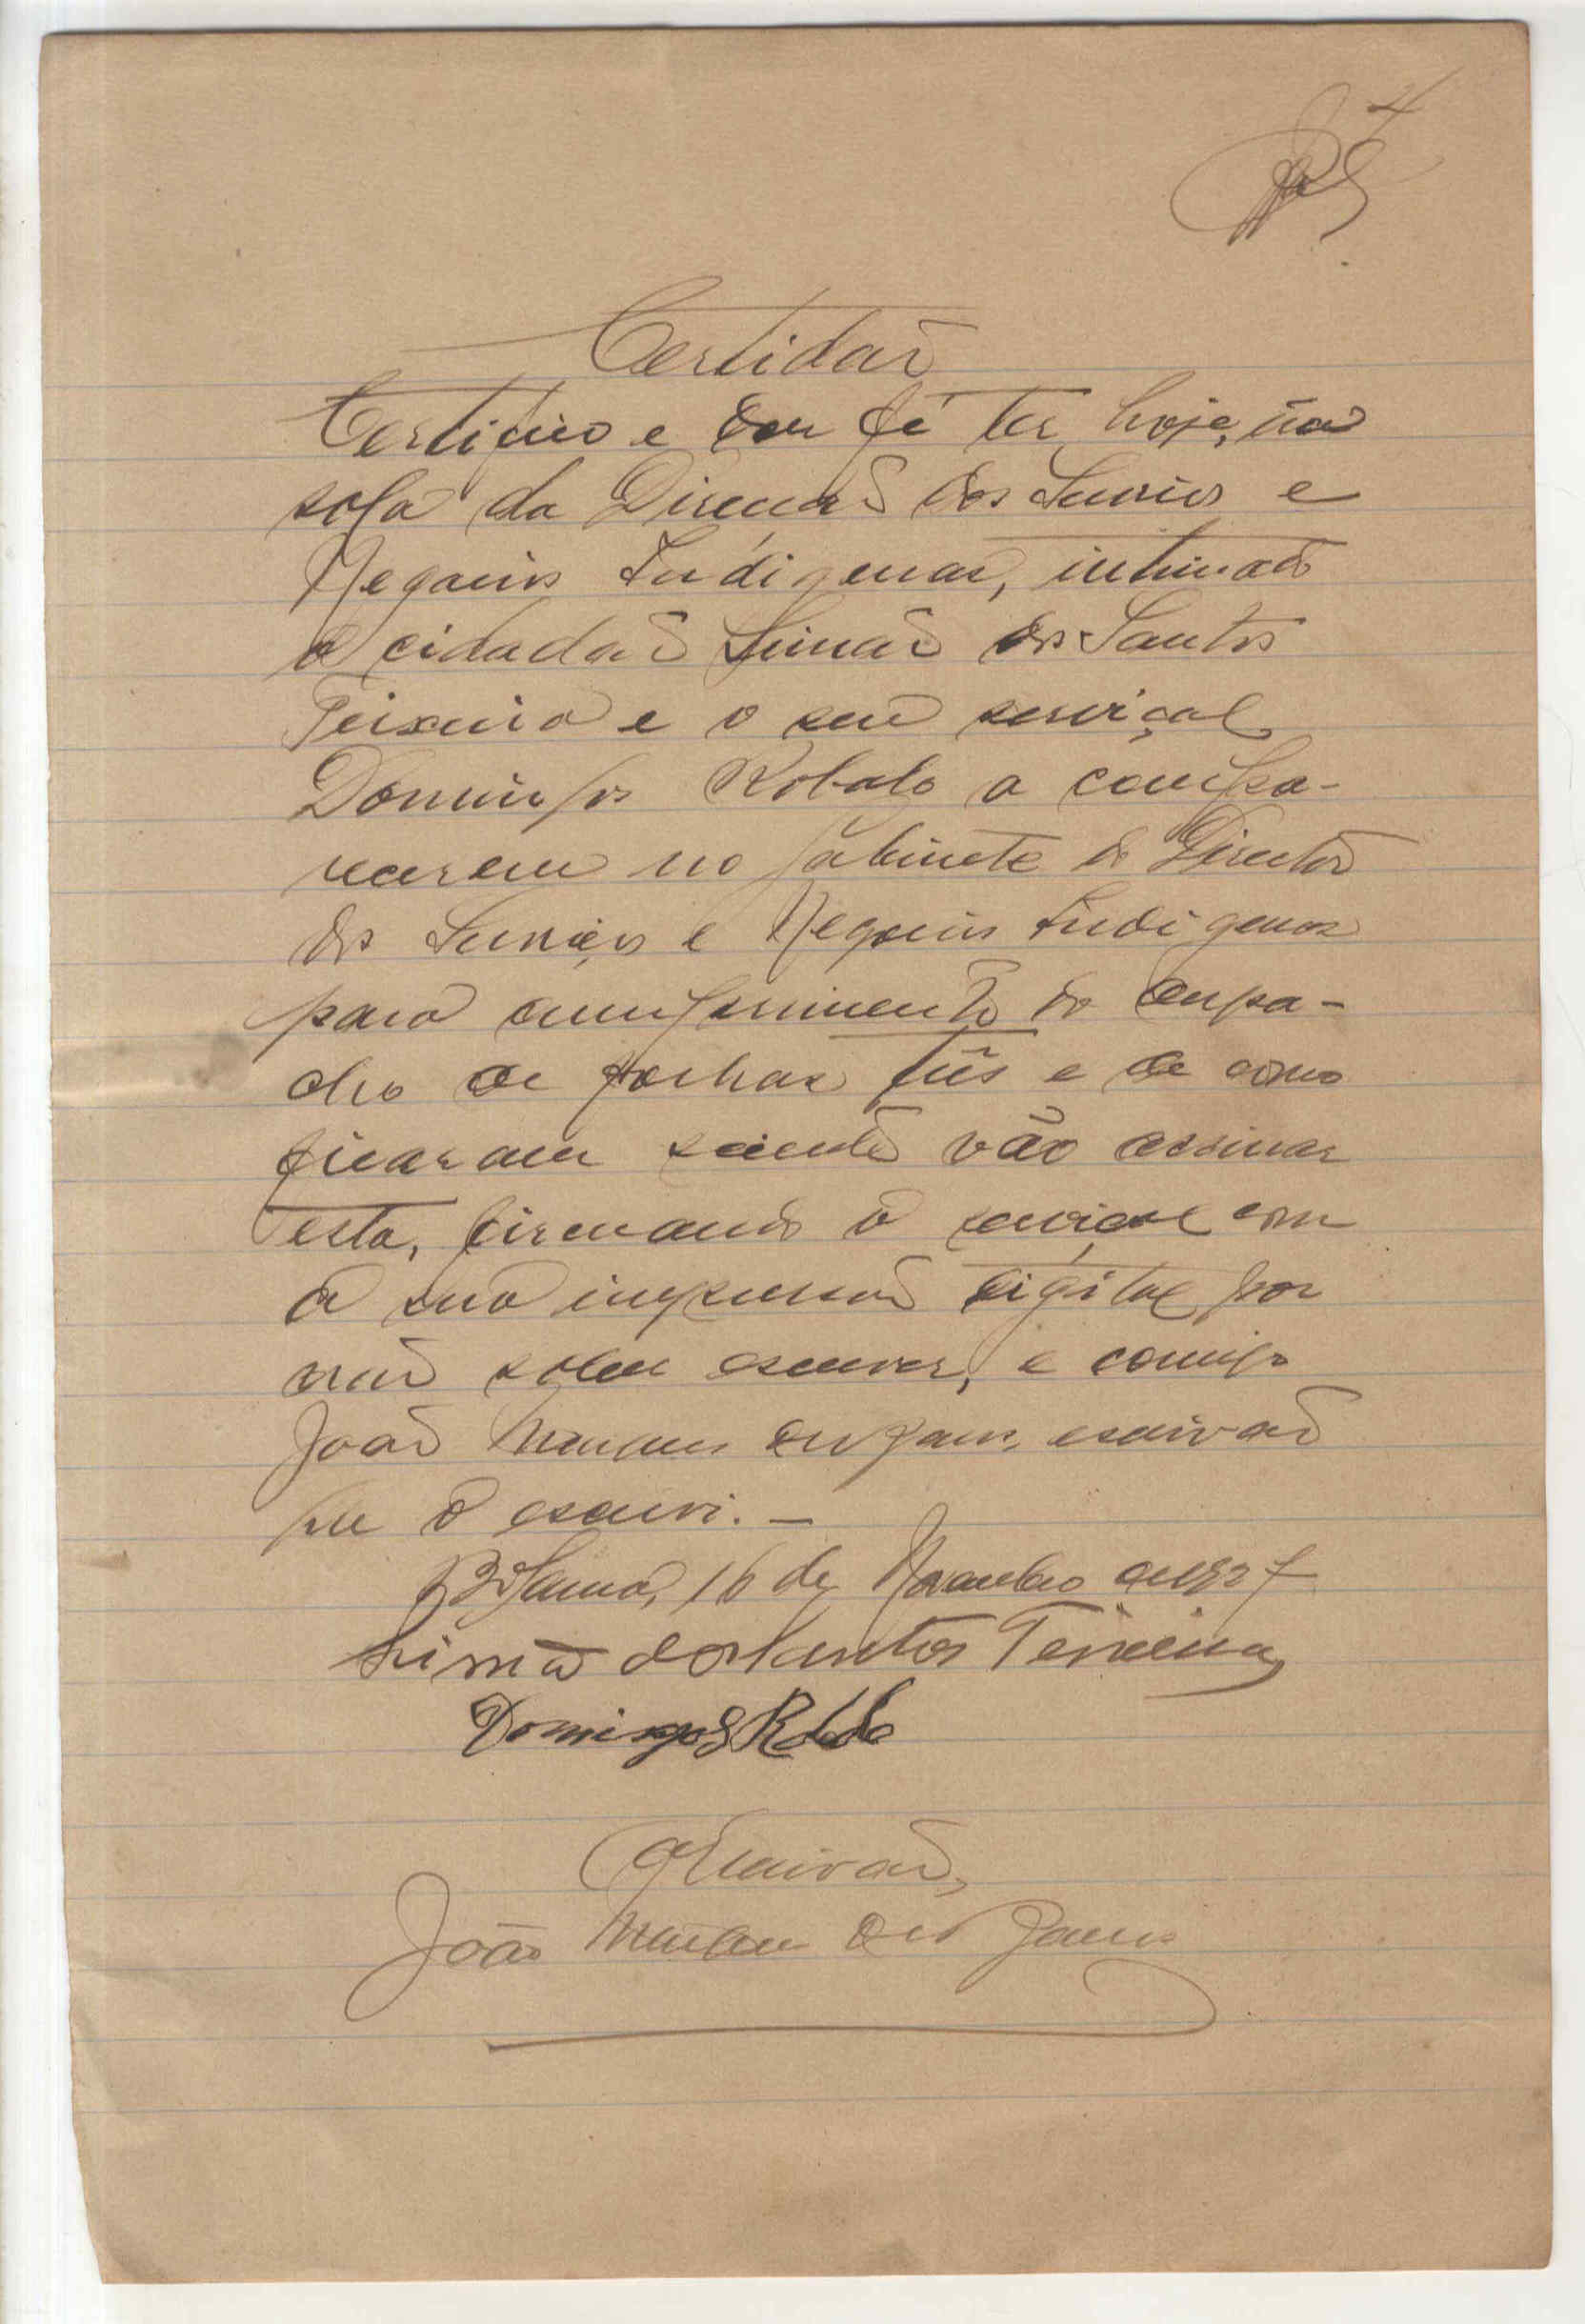 4
Certidão
Certifico e dou fé ter, hoje, na
sala da Direcção dos Serviços e
Negocios Indigenas, intimado
o cidadão Simão dos Santos
Teixeira e o seu serviçal
Domingos Robalo a compa-
recerem no gabinete do Director
dos Serviços e Negocios Indigenas
para cumprimento do despa-
cho de folhas três e de como
ficaram scientes vão assinar
esta, firmando o serviçal com
a sua impressão digital por
não saber escrever, e comigo
João escrivão
que o escrevi. —
Bolama, 16 de Novembro de 1927
Simão dos Santos Teixeira
Domingos Robalo
O Escrivão,
João